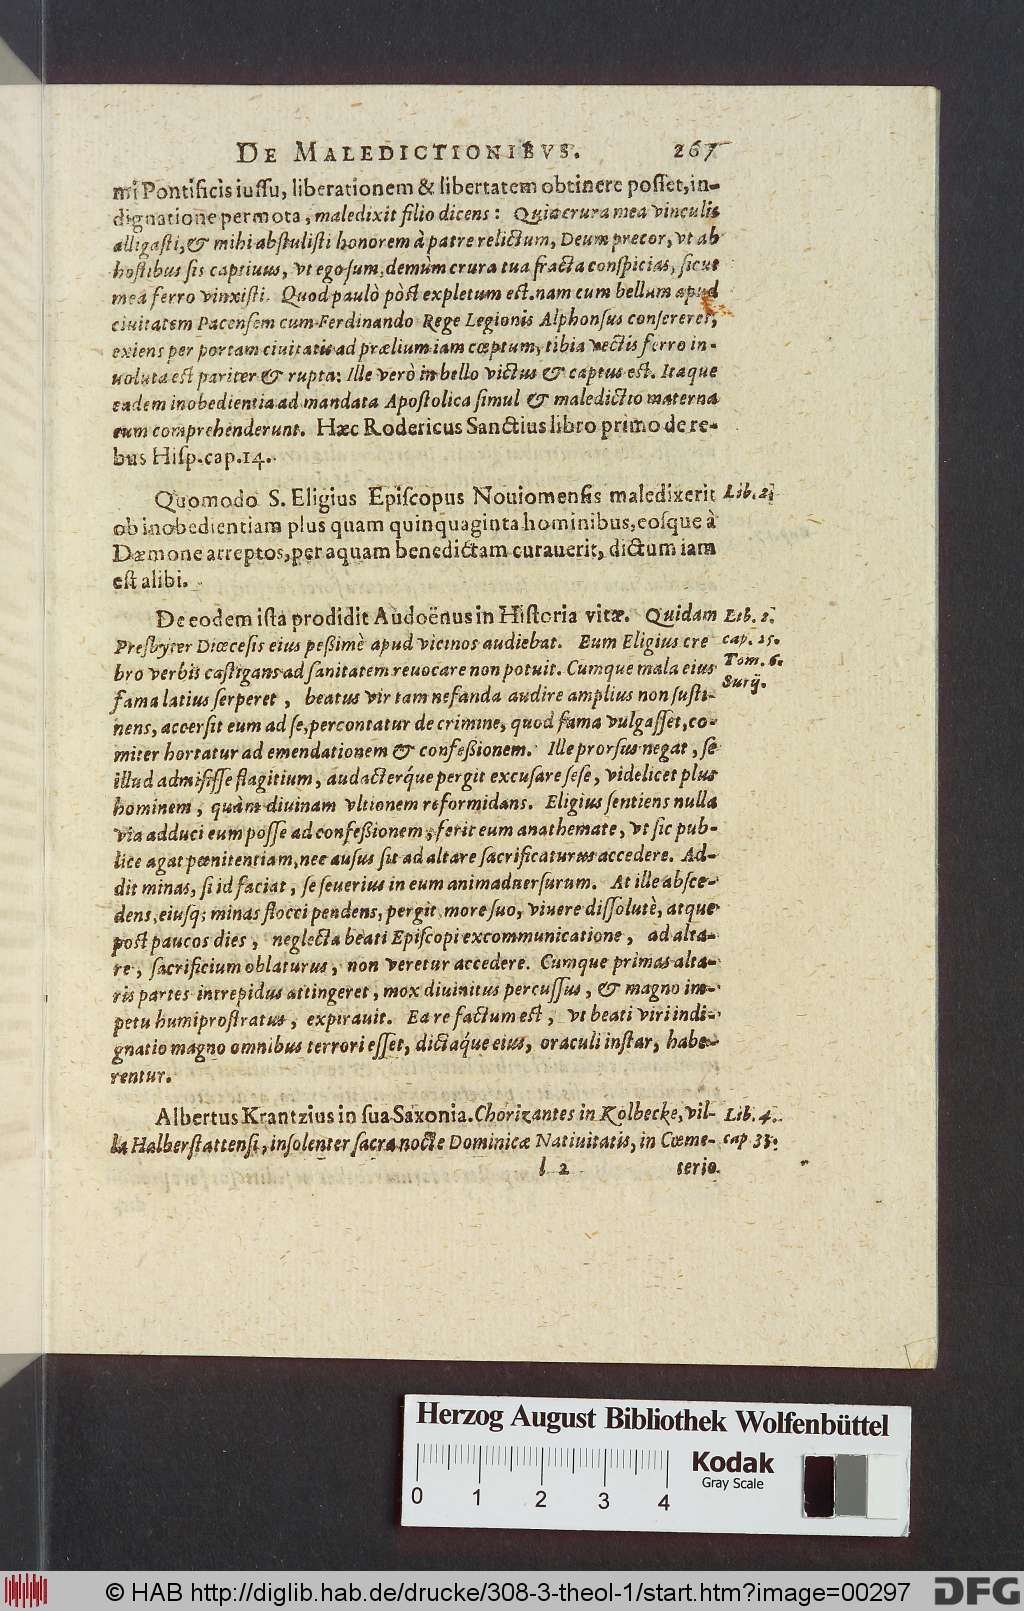 DE MALEDICTIONIBVS. 267
mi Pontificis iuſſu, liberationem & libertatem obtinere poſſet, in-
dignatione permota, maledixit filio dicens: Quia crura mea vinculis
alligaſti, & mihi abſtuliſti honorem à patre relictum, Deum precor, vt ab
hoſtibus ſis captiuus, vt ego ſum, demùm crura tua fracta conſpicias, ſicut
mea ferro vinxiſti. Quod paulò pòſt expletum eſt. nam cum bellum apud
ciuitatem Pacenſem cum Ferdinando Rege Legionis Alphonſus conſereret,
exiens per portam ciuitatis ad prælium iam cœptum, tibia vectis ferro in-
uoluta eſt pariter & rupta: Ille verò in bello victus & captus eſt. Itaque
eadem inobedientia ad mandata Apoſtolica ſimul & maledictio materna
eum comprehenderunt. Hæc Rodericus Sanctius libro primo de re-
bus Hiſp. cap. 14.
Quomodo S. Eligius Epiſcopus Nouiomenſis maledixerit Lib. 2.
ob inobedientiam plus quam quinquaginta hominibus, eoſque à
Dæmone arreptos, per aquam benedictam curauerit, dictum iam
eſt alibi.
De eodem iſta prodidit Audoënus in Hiſtoria vitæ. Quidam Lib. 2.
Preſbyter Diœceſis eius peßimè apud vicinos audiebat. Eum Eligius cre cap. 25.
bro verbis caſtigans ad ſanitatem reuocare non potuit. Cumque mala eius Tom. 6.
fama latius ſerperet, beatus vir tam nefanda audire amplius non ſuſti- Surij.
nens, accerſit eum ad ſe, percontatur de crimine, quod fama vulgaſſet, co-
miter hortatur ad emendationem & confeßionem. Ille prorſus negat, ſe
illud admiſiſſe flagitium, audacterq́ue pergit excuſare ſeſe, videlicet plus
hominem, quàm diuinam vltionem reformidans. Eligius ſentiens nulla
via adduci eum poſſe ad confeßionem, ferit eum anathemate, vt ſic pub-
lice agat pœnitentiam, nec auſus ſit ad altare ſacrificaturus accedere. Ad-
dit minas, ſi id faciat, ſe ſeuerius in eum animaduerſurum. At ille abſce-
dens, eiuſq; minas flocci pendens, pergit more ſuo, viuere diſſolutè, atque
poſt paucos dies, neglecta beati Epiſcopi excommunicatione, ad alta-
re, ſacrificium oblaturus, non veretur accedere. Cumque primas alta-
ris partes intrepidus attingeret, mox diuinitus percuſſus, & magno im-
petu humi proſtratus, expirauit. Ea re factum eſt, vt beati viri indi-
gnatio magno omnibus terrori eſſet, dictaq́ue eius, oraculi inſtar, habe-
rentur.
Albertus Krantzius in ſua Saxonia. Chorizantes in Kolbecke, vil- Lib. 4.
la Halberſtattenſi, inſolenter ſacra nocte Dominicæ Natiuitatis, in Cœme- cap. 33.
l 2 terio
Herzog August Bibliothek Wolfenbüttel
Kodak
Gray Scale
0 1 2 3 4
© HAB http://diglib.hab.de/drucke/308-3-theol-1/start.htm?image=00297
DFG